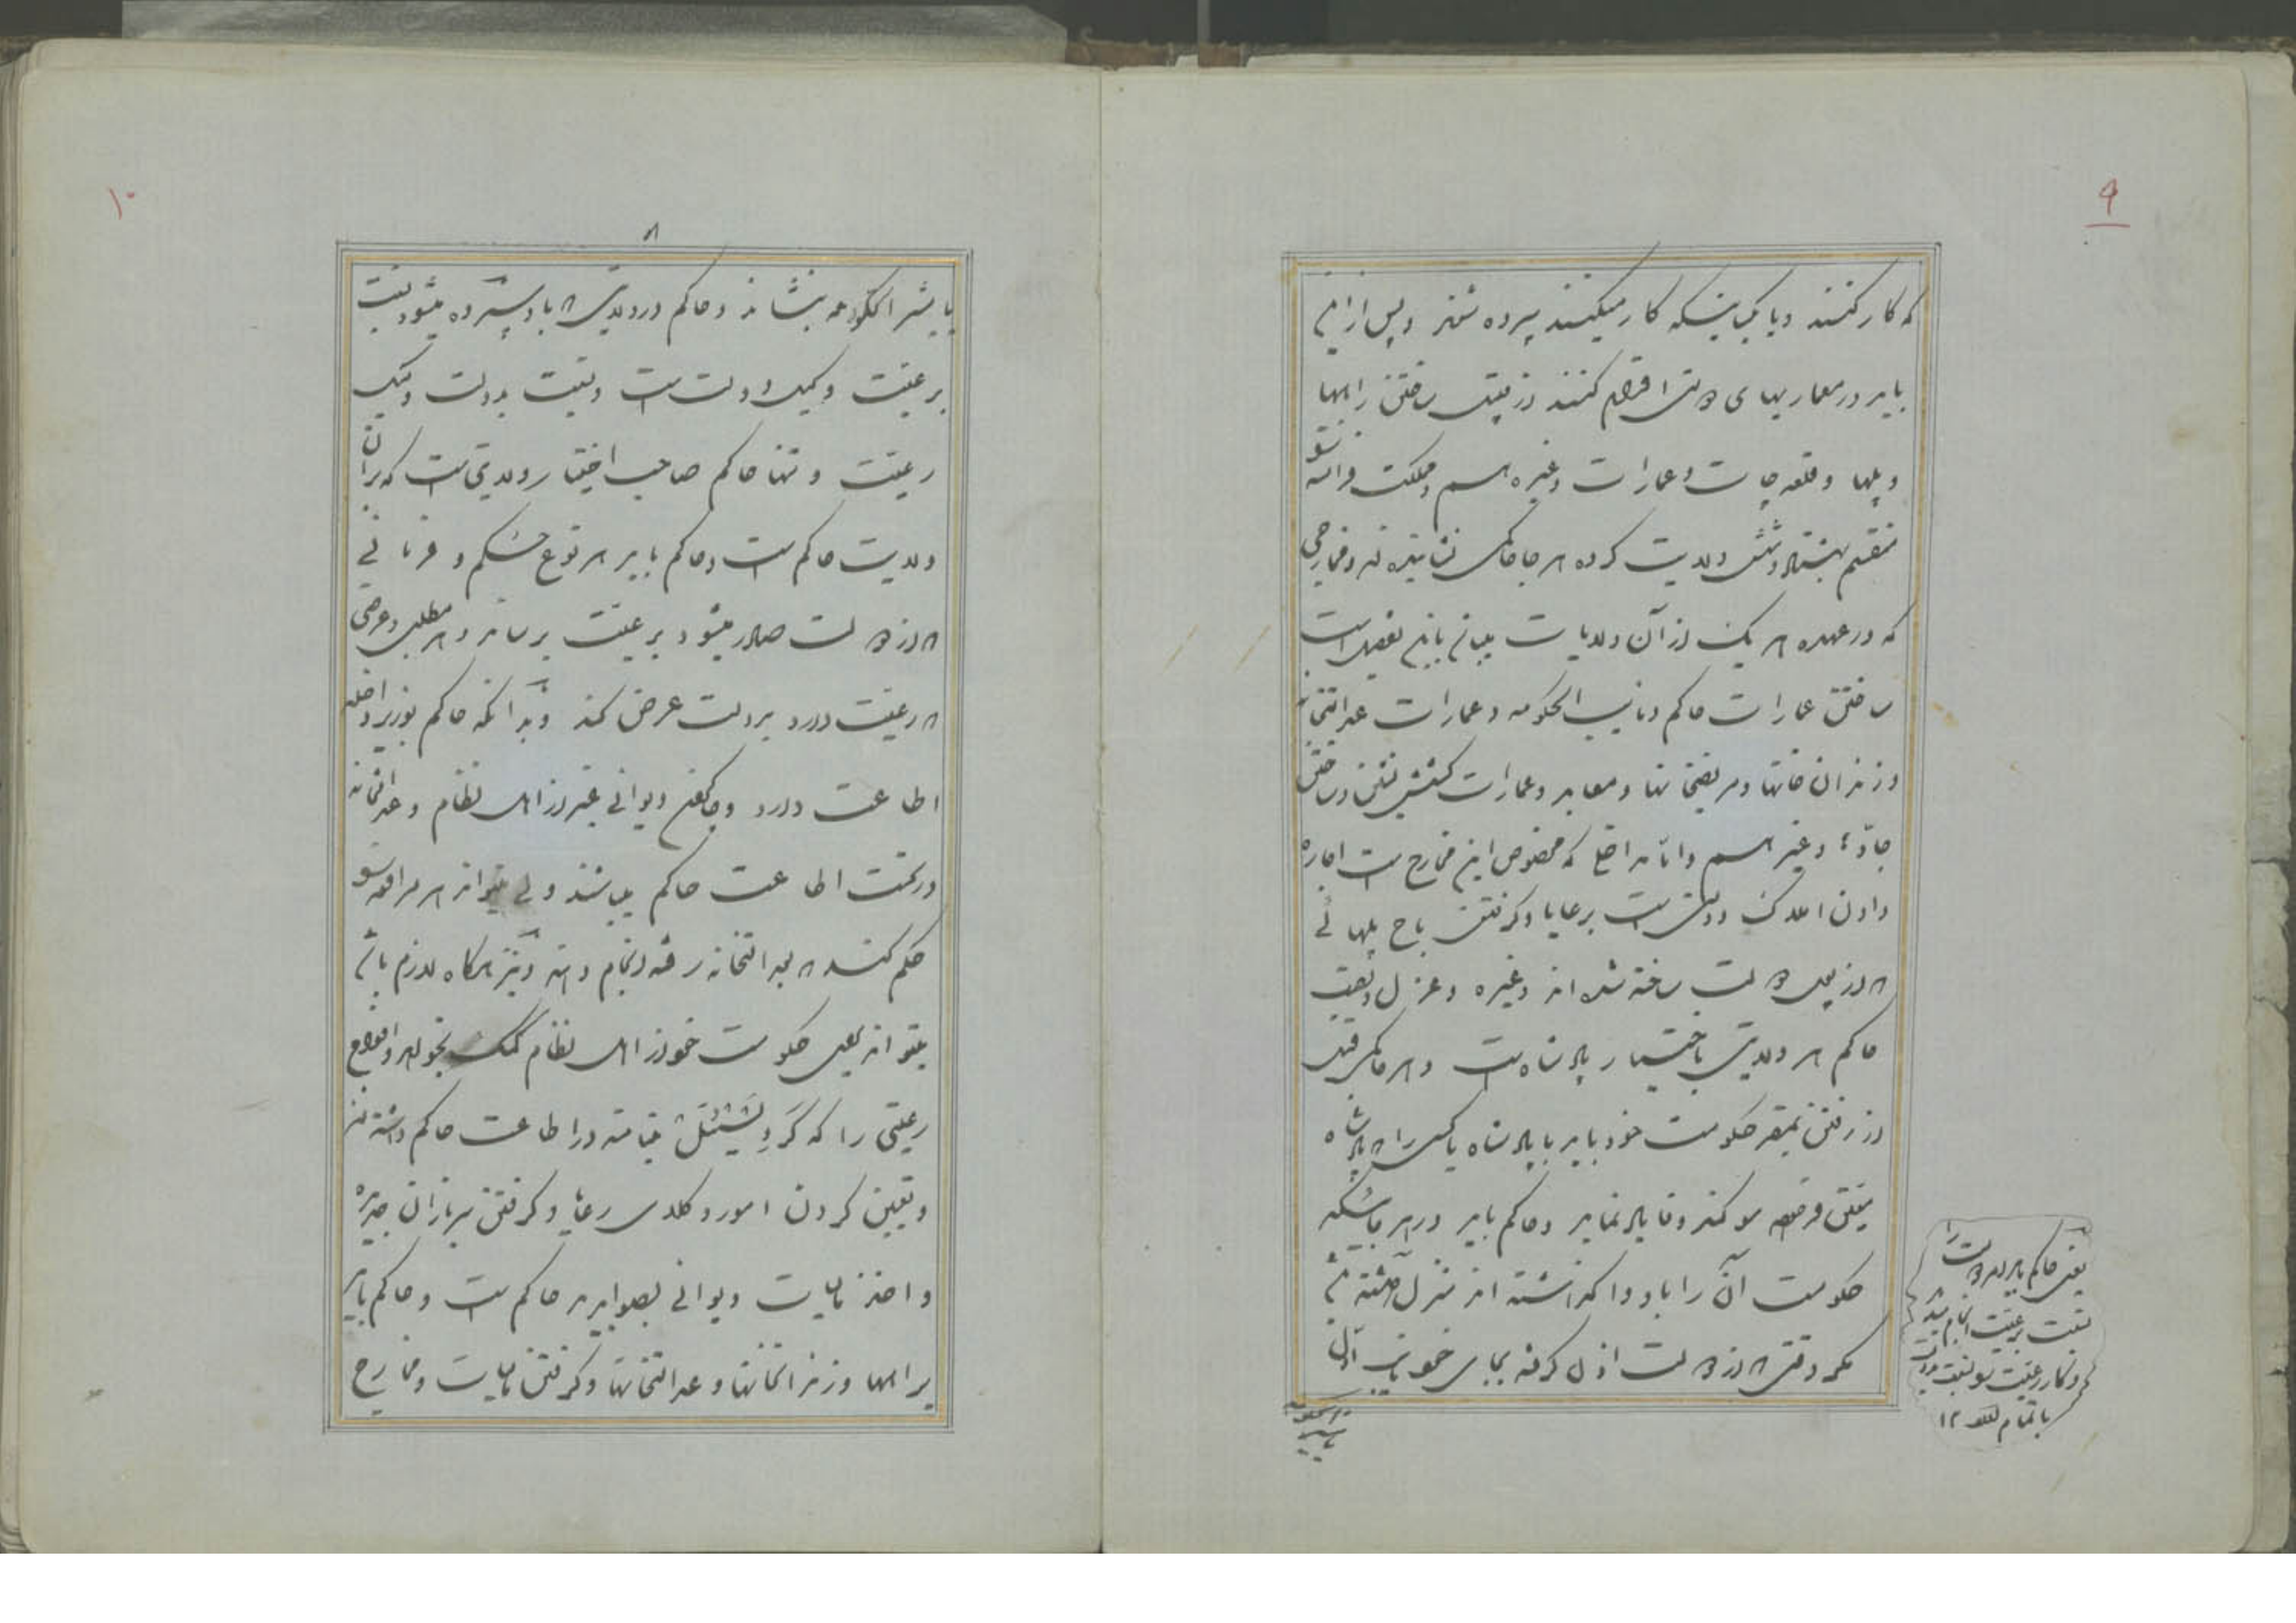 ۹
که کار کنند و با کسانیکه کار میکنند سپرده شوند و پس از این
باید در معماریهای دولتی اقدام کنند از قبیل ساختن راهها
و پلها و قلعه جات و عمارات و غیره هم مملکت فرانسه
منقسم بهشتاد و شش ولایت کرده هر جا حاکمی نشانیده اند و مخارجی
که در عهده هر یک از آن ولایات میباشد باین تفصیل است
ساختن عمارات حاکم و نایب الحکومه و عمارات عدالتخانه
و زندان خانها و مریضخانها و معابد و عمارات کشیش نشین و ساختن
جاده و غیره هم و اما مداخل که مخصوص این مخارج است اجاره
دادن املاک دولتی است برعایا و گرفتن باج پلهائی
که از قبل دولت ساخته شده اند و غیره و عزل و نصب
حاکم هر ولایتی باختیار پادشاه است و هر حاکمی قبل
از رفتن بمقر حکومت خود باید با پادشاه یا کسی را که پادشاه
معین فرماید ملاقات نماید و حاکم باید در هر جائیکه
حکومت آن را باو واگذاشته اند منزل داشته باشد
مگر وقتی که از دولت اذن گرفته بجای خود نایب اول
یعنی حاکم باید امر دولت را
نسبت برعیت انجام دهد
و کار رعیت را نسبت بدولت
باتمام رساند ۱۲
۱۰
۸
یا پیشرالحکومه بنشاند و حاکم در ولایتی که باو سپرده میشود نسبت
برعیت وکیل دولت است و نسبت بدولت وکیل
رعیت و تنها حاکم صاحب اختیار ولایتی است که بر آن
ولایت حاکم است و حاکم باید هر نوع حکم و فرمانی
که از دولت صادر میشود برعیت برساند و هر مطلب و عرضی
که رعیت دارد بدولت عرض کند و بدانکه حاکم بوزیر داخله
اطاعت دارد و جمیع دیوانی غیر از اهل نظام و عدالتخانه
در تحت اطاعت حاکم میباشند ولی میتواند هر مرافعه را
حکم کند که بعدالتخانه رفته انجام دهند و نیز هرگاه لازم باشد
میتواند بجهت حکومت خود از اهل نظام کمک بخواهد و افواج
رعیتی را که گَرد نَشیُنَل مینامند در اطاعت حاکم داشته اند
و تعیین کردن امور وکلای رعایا و گرفتن سربازان جدید
و اخذ مالیات دیوانی بصوابدید حاکم است و حاکم باید
براهها و زندانخانها و عدالتخانها و گرفتن مالیات و مخارج